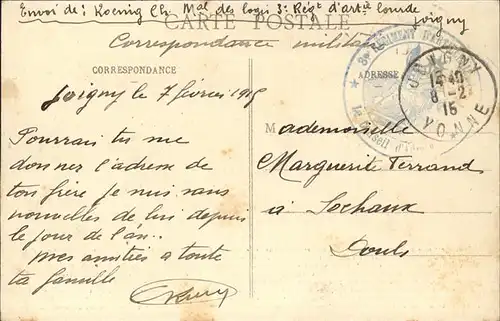 Envoi de : Koenig Ch. Mal des logis 3e Régt d'artie lourde
Joigny
CARTE POSTALE
Correspondance militaire
CORRESPONDANCE
ADRESSE
JOIGNY
15 40
8 -2
15
YONNE
Joigny le 7 février 1915
Pourrais tu me
donner l'adresse de
ton frère je suis sans
nouvelles de lui depuis
le jour de l'an..
mes amitiés a toute
ta famille
Mademoiselle
Marguerite Ferrand
a Sochaux
Doubs